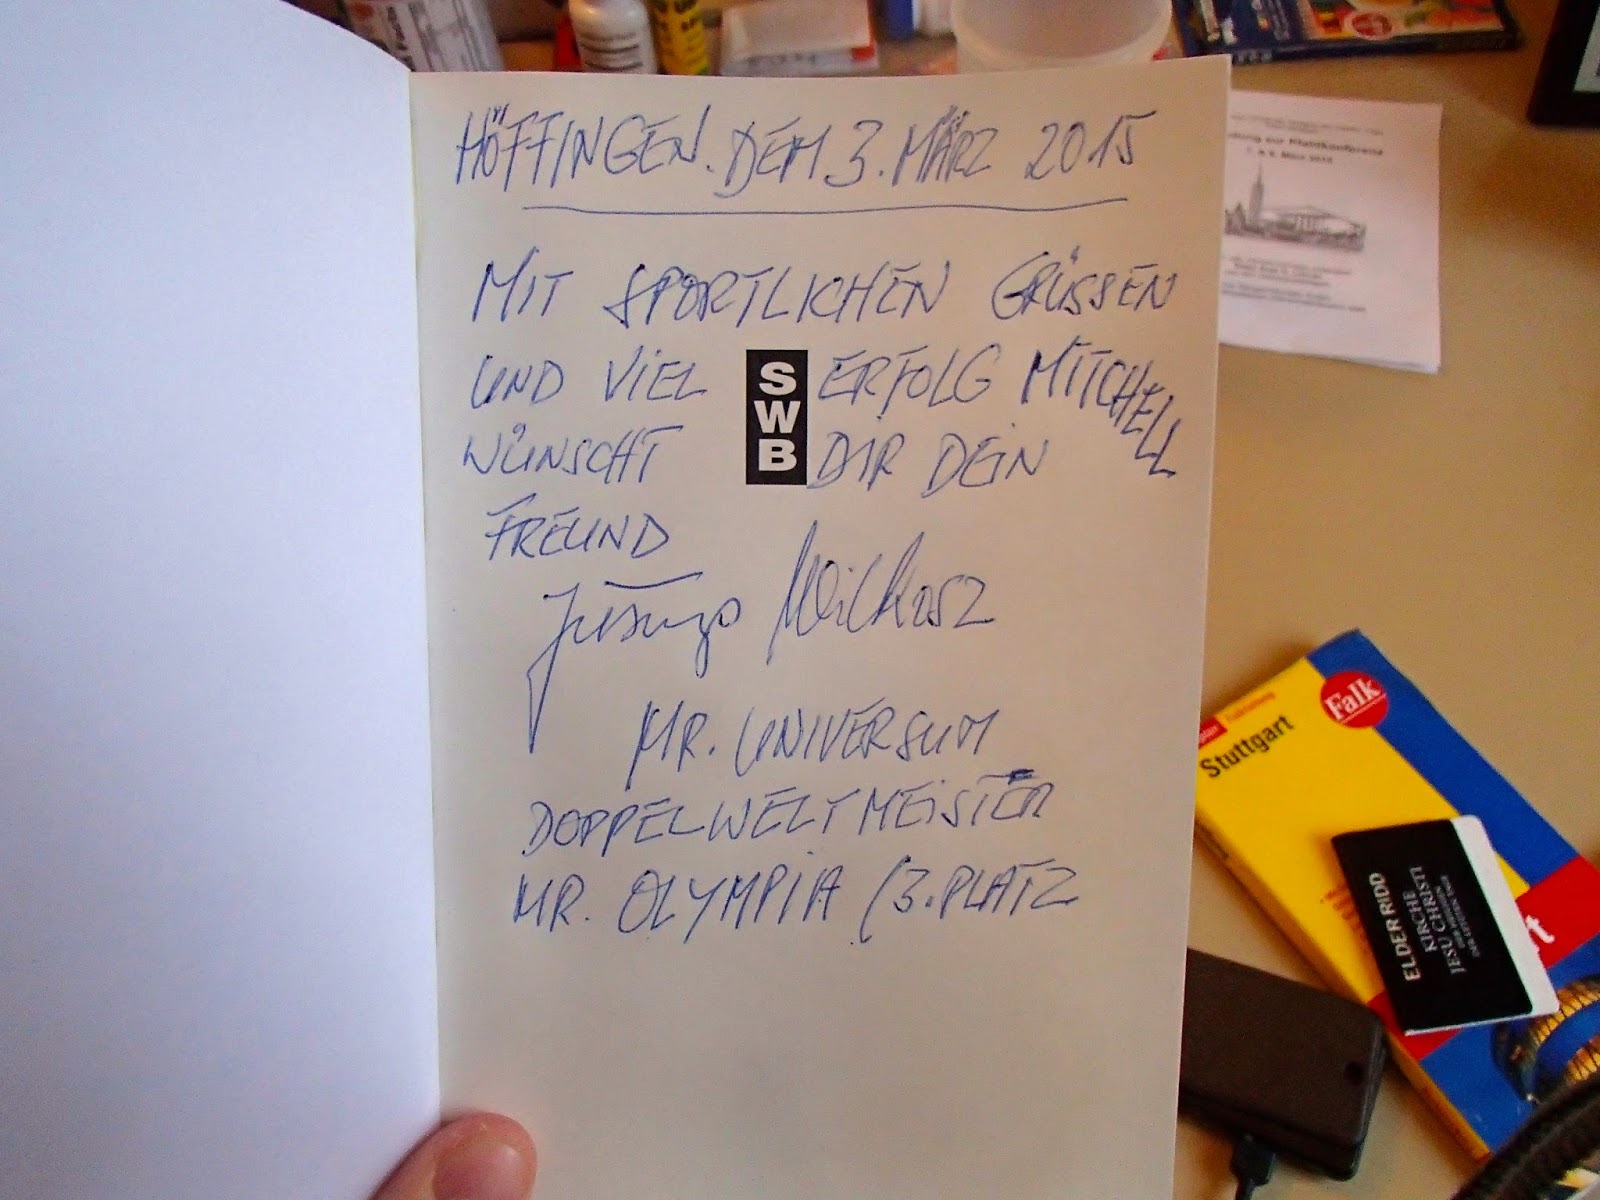 HÖFFINGEN. DEM 3. MÄRZ 2015
MIT SPORTLICHEN GRÜSSEN
UND VIEL ERFOLG MITCHELL
WÜNSCHT DIR DEIN
FREUND
SWB
MR. UNIVERSUM
DOPPELWELTMEISTER
MR. OLYMPIA /3.PLATZ
Falk
Stuttgart
ELDER RIDD
KIRCHE
JESU CHRISTI